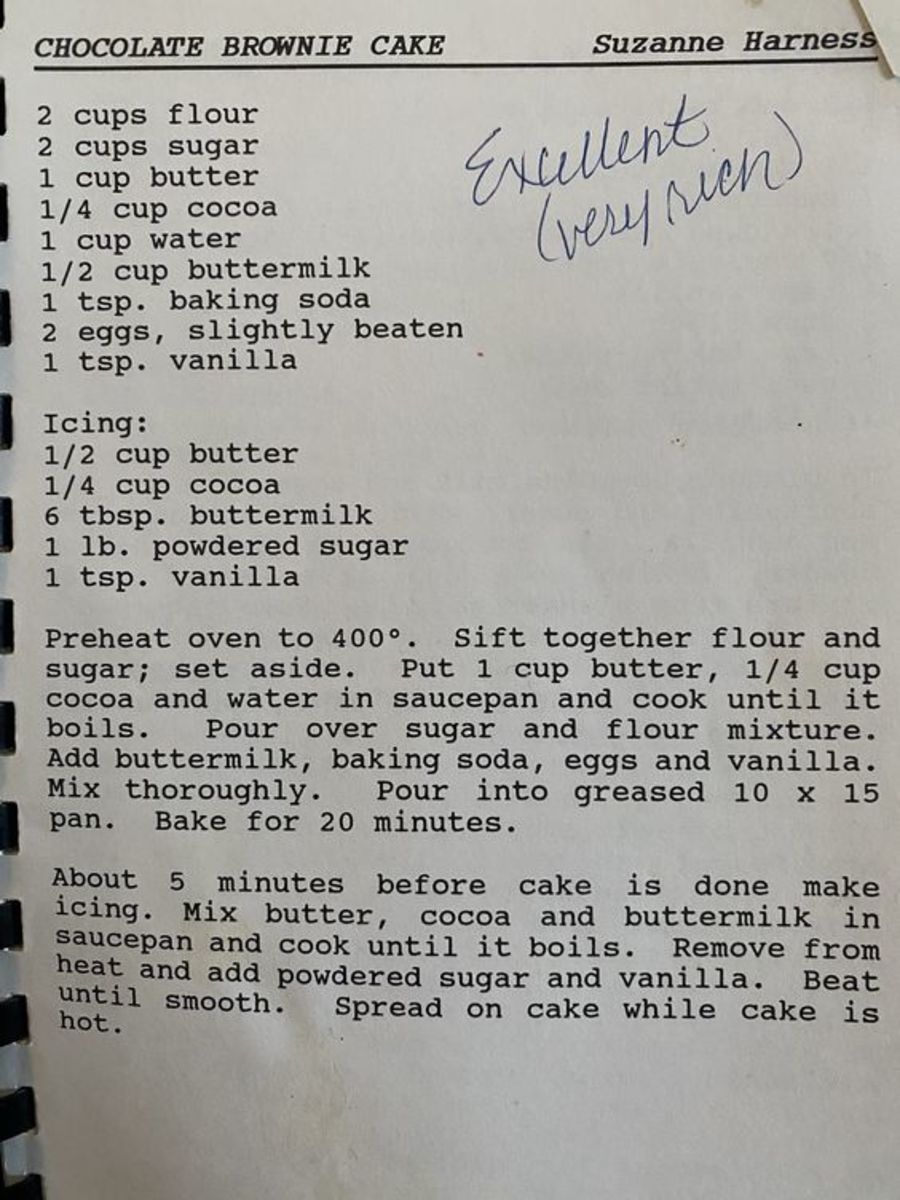 CHOCOLATE BROWNIE CAKE Suzanne Harness
Excellent
(very rich)
2 cups flour
2 cups sugar
1 cup butter
1/4 cup cocoa
1 cup water
1/2 cup buttermilk
1 tsp. baking soda
2 eggs, slightly beaten
1 tsp. vanilla
Icing:
1/2 cup butter
1/4 cup cocoa
6 tbsp. buttermilk
1 lb. powdered sugar
1 tsp. vanilla
Preheat oven to 400°. Sift together flour and
sugar; set aside. Put 1 cup butter, 1/4 cup
cocoa and water in saucepan and cook until it
boils. Pour over sugar and flour mixture.
Add buttermilk, baking soda, eggs and vanilla.
Mix thoroughly. Pour into greased 10 x 15
pan. Bake for 20 minutes.
About 5 minutes before cake is done make
icing. Mix butter, cocoa and buttermilk in
saucepan and cook until it boils. Remove from
heat and add powdered sugar and vanilla. Beat
until smooth. Spread on cake while cake is
hot.